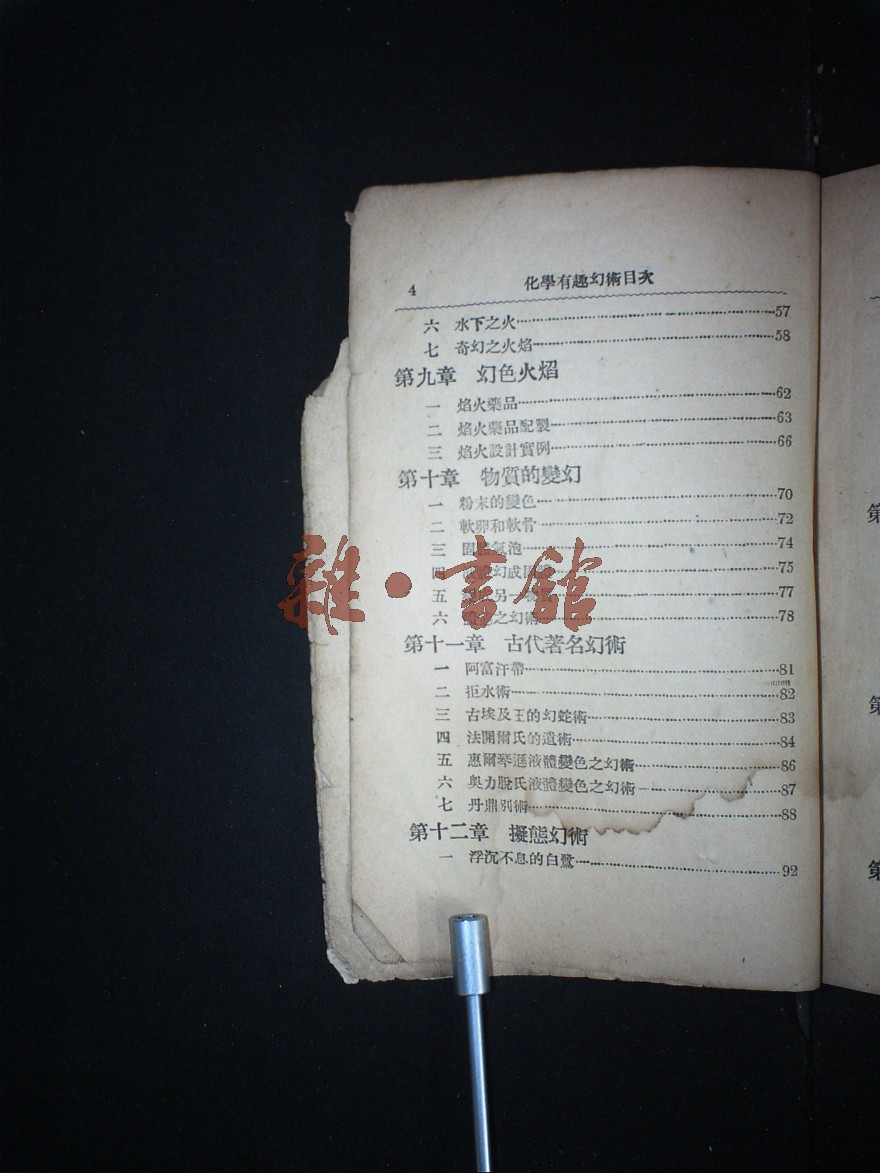 4 化學有趣幻術目次
六 水下之火……57
七 奇幻之火焰……58
第九章 幻色火焰
一 焰火藥品……62
二 焰火藥品配製……63
三 焰火設計實例……66
第十章 物質的變幻
一 粉末的變色……70
二 軟卵和軟骨……72
三 固體氣泡……74
四 幻成固……75
五 另一……77
六 之幻術……78
第十一章 古代著名幻術
一 阿富汗帶……81
二 拒水術……82
三 古埃及王的幻蛇術……83
四 法開爾氏的遺術……84
五 惠爾琴遜液體變色之幻術……86
六 奧力脫氏液體變色之幻術……87
七 丹鼎別術……88
第十二章 擬態幻術
一 浮沉不息的白鷺……92
雜·書館